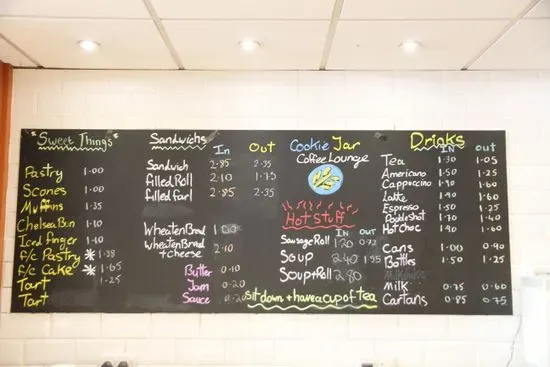 "Sweet Things"
Pastry 1.00
Scones 1.00
Muffins 1.35
Chelsea Bun 1.00
Iced finger 1.10
f/c Pastry * 1.38
f/c Cake * 1.65
Tart 1.25
Tart
Sandwichs
In Out
Sandwich 2.85 2.35
filled Roll 2.10 1.75
filled farl 2.85 2.35
Wheaten Bread 1.00
wheaten Bread + cheese 2.10
Butter 0.10
Jam 0.20
Sauce 0.20
Cookie Jar
Coffee Lounge
Hot Stuff
In out
Sausage Roll 1.20
Soup 2.40 1.55
Soup + Roll 2.80
Sit down + have a cup of tea
Drinks
IN out
Tea 1.30 1.05
Americano 1.50 1.25
Cappuccino 1.90 1.60
Latte 1.90 1.60
Espresso 1.50 1.25
Double shot 1.70 1.40
Hot Choc 1.90 1.60
Cans 1.00 0.90
Bottles 1.50 1.25
Milk 0.75 0.60
Cartans 0.85 0.75